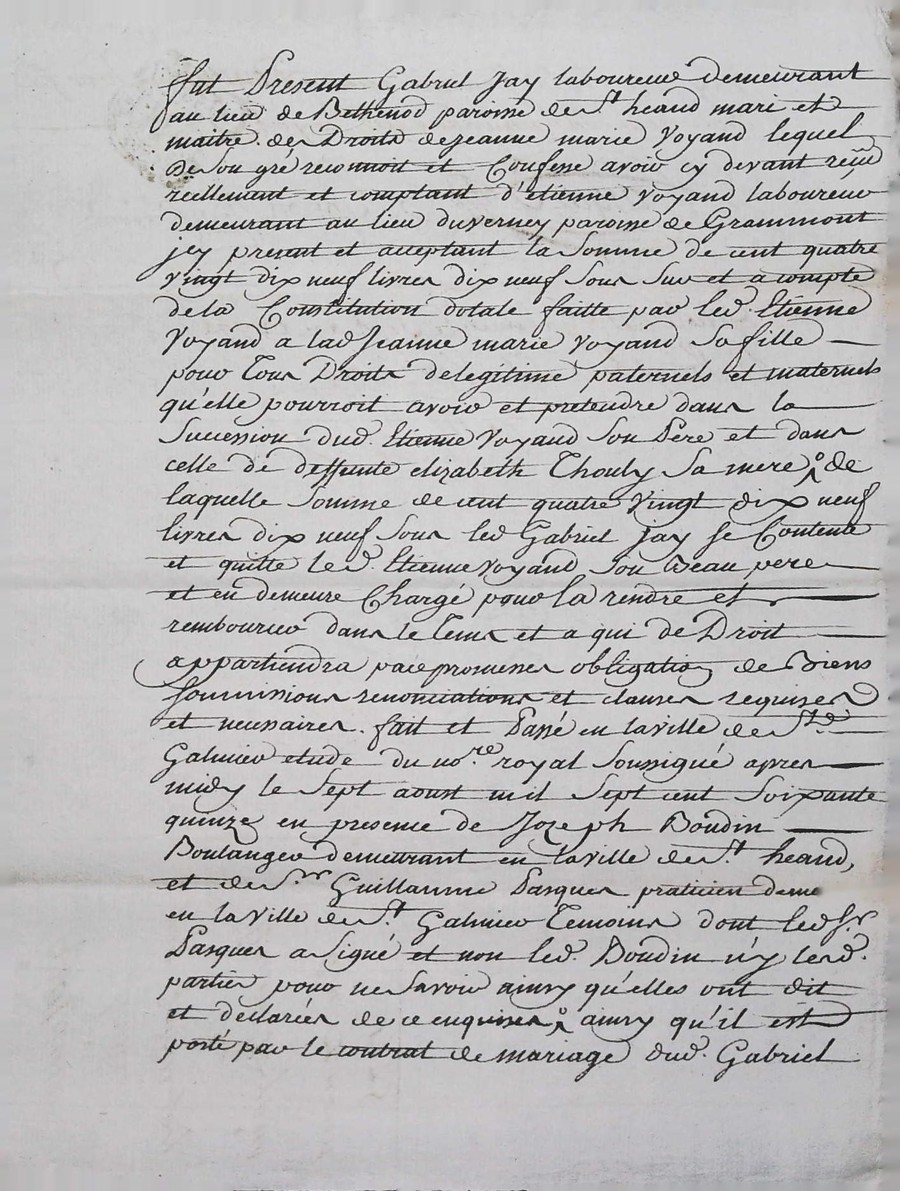 fut Present Gabriel Jay laboureur demeurant
au lieu de Bethenod paroisse de St heand mari et
maitre des Droits de Jeanne marie Voyand lequel
de Son gré reconnoit et Confesse avoir cy devant reçu
reellement et comptant d'etienne Voyand laboureur
demeurant au lieu duverney paroisse de Grammont
jcy present et acceptant la Somme de cent quatre
vingt dix neuf livres dix neuf Sous Sur et a compte
de la Constitution dotale faitte par led. Etienne
Voyand a lad Jeanne marie Voyand Sa fille
pour Tous Droits de legitime paternels et maternels
qu'elle pourroit avoir et pretendre dans la
Succession dud. Etienne Voyand Son Pere et dans
celle de deffunte elizabeth Thouly Sa mere, de
laquelle Somme de cent quatre Vingt dix neuf
livres dix neuf Sous led Gabriel Jay se Contente
et quitte led. Etienne Voyand Son Beau pere
et en demeure Chargé pour la rendre et
rembourcer dans le Tems et a qui de Droit
appartiendra par promesses obligation de Biens
Soumissions renonciations et clauses requises
et necessaires. fait et Passé en la ville de St
Galmier etude du no.re royal Soussigné apres
midy le Sept aoust mil Sept cent Soixante
quinze en presence de Jozeph Boudin
Boulanger demeurant en la ville de St heand,
et de Sr Guillaume Pasques praticien deme
en la ville de St Galmier Temoins dont led Sr
Pasques a Signé et non led. Boudin n'y lesd.
parties pour ne Savoir ainsy qu'elles ont dit
et declarées de ce enquises, ainsy qu'il est
porté par le contrat de mariage dud. Gabriel